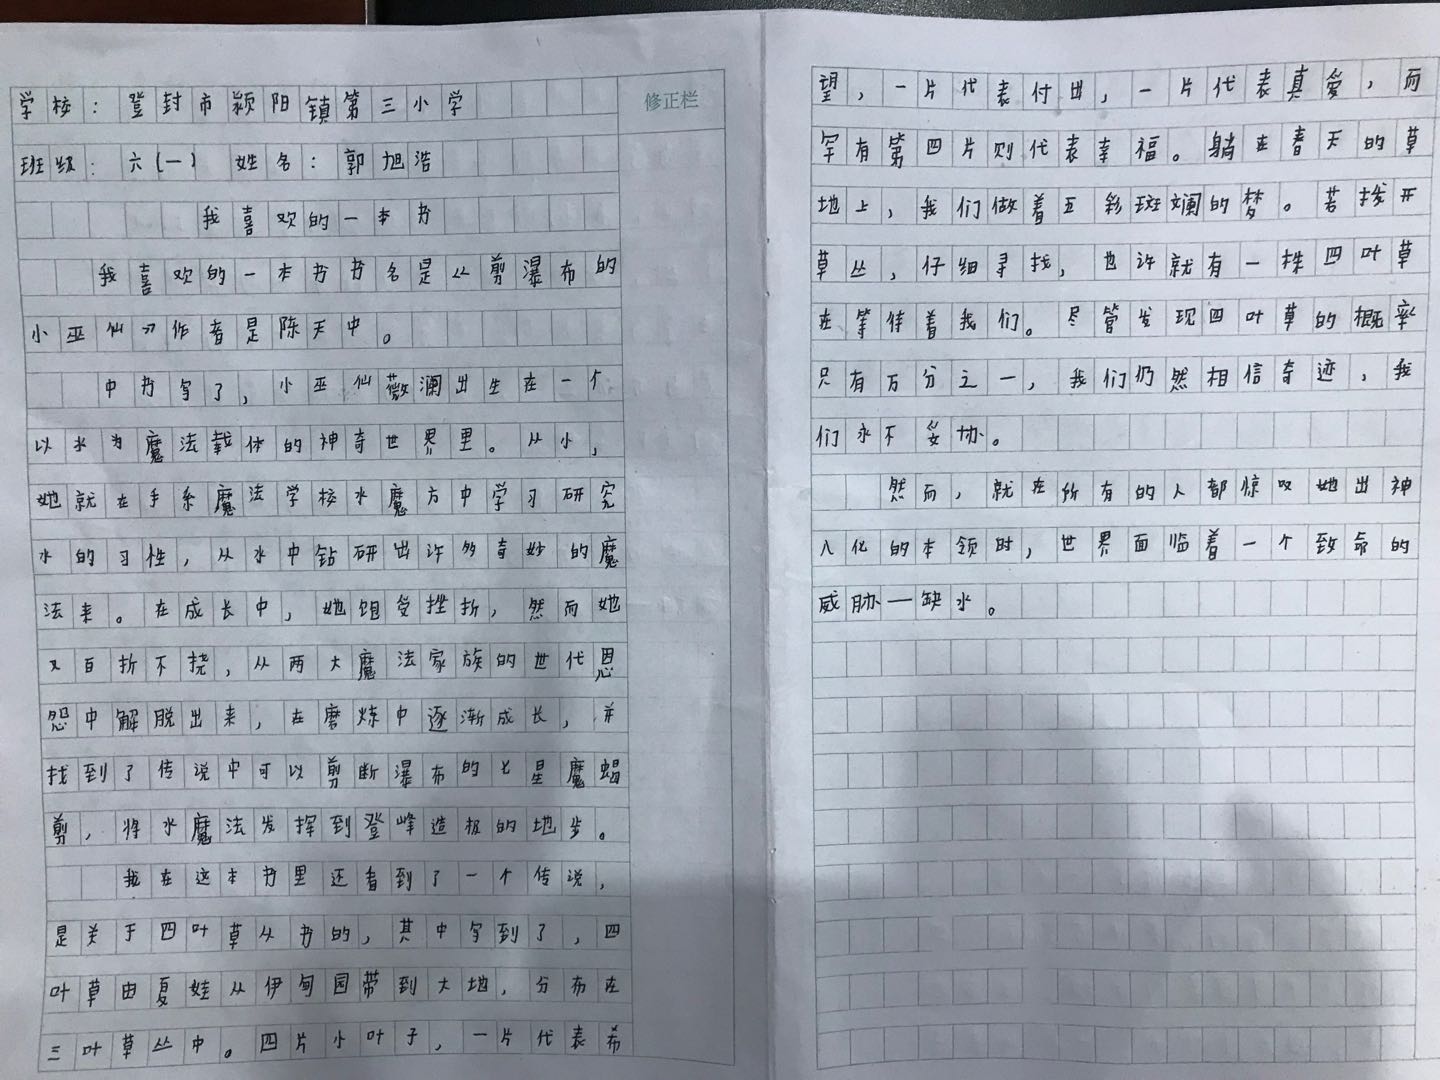 学校：登封市颍阳镇第三小学
修正栏
班级：六(一) 姓名：郭旭浩
我喜欢的一本书
我喜欢的一本书书名是从剪瀑布的
小巫仙习作者是陈天中。
中书写了，小巫仙薇澜出生在一个
以水为魔法载体的神奇世界里。从小，
她就在手系魔法学校水魔方中学习研究
水的习性，从水中钻研出许多奇妙的魔
法来。在成长中，她饱受挫折，然而她
又百折不挠，从两大魔法家族的世代恩
怨中解脱出来，在磨炼中逐渐成长，并
找到了传说中可以剪断瀑布的七星魔蝎
剪，将水魔法发挥到登峰造极的地步。
我在这本书里还看到了一个传说，
是关于四叶草从书的，其中写到了，四
叶草由夏娃从伊甸园带到大地，分布在
三叶草丛中。四片小叶子，一片代表希
望，一片代表付出，一片代表真爱，而
罕有第四片则代表幸福。躺在春天的草
地上，我们做着五彩斑斓的梦。若拨开
草丛，仔细寻找，也许就有一株四叶草
在等待着我们。尽管发现四叶草的概率
只有万分之一，我们仍然相信奇迹，我
们永不妥协。
然而，就在所有的人都惊叹她出神
入化的本领时，世界面临着一个致命的
威胁—缺水。